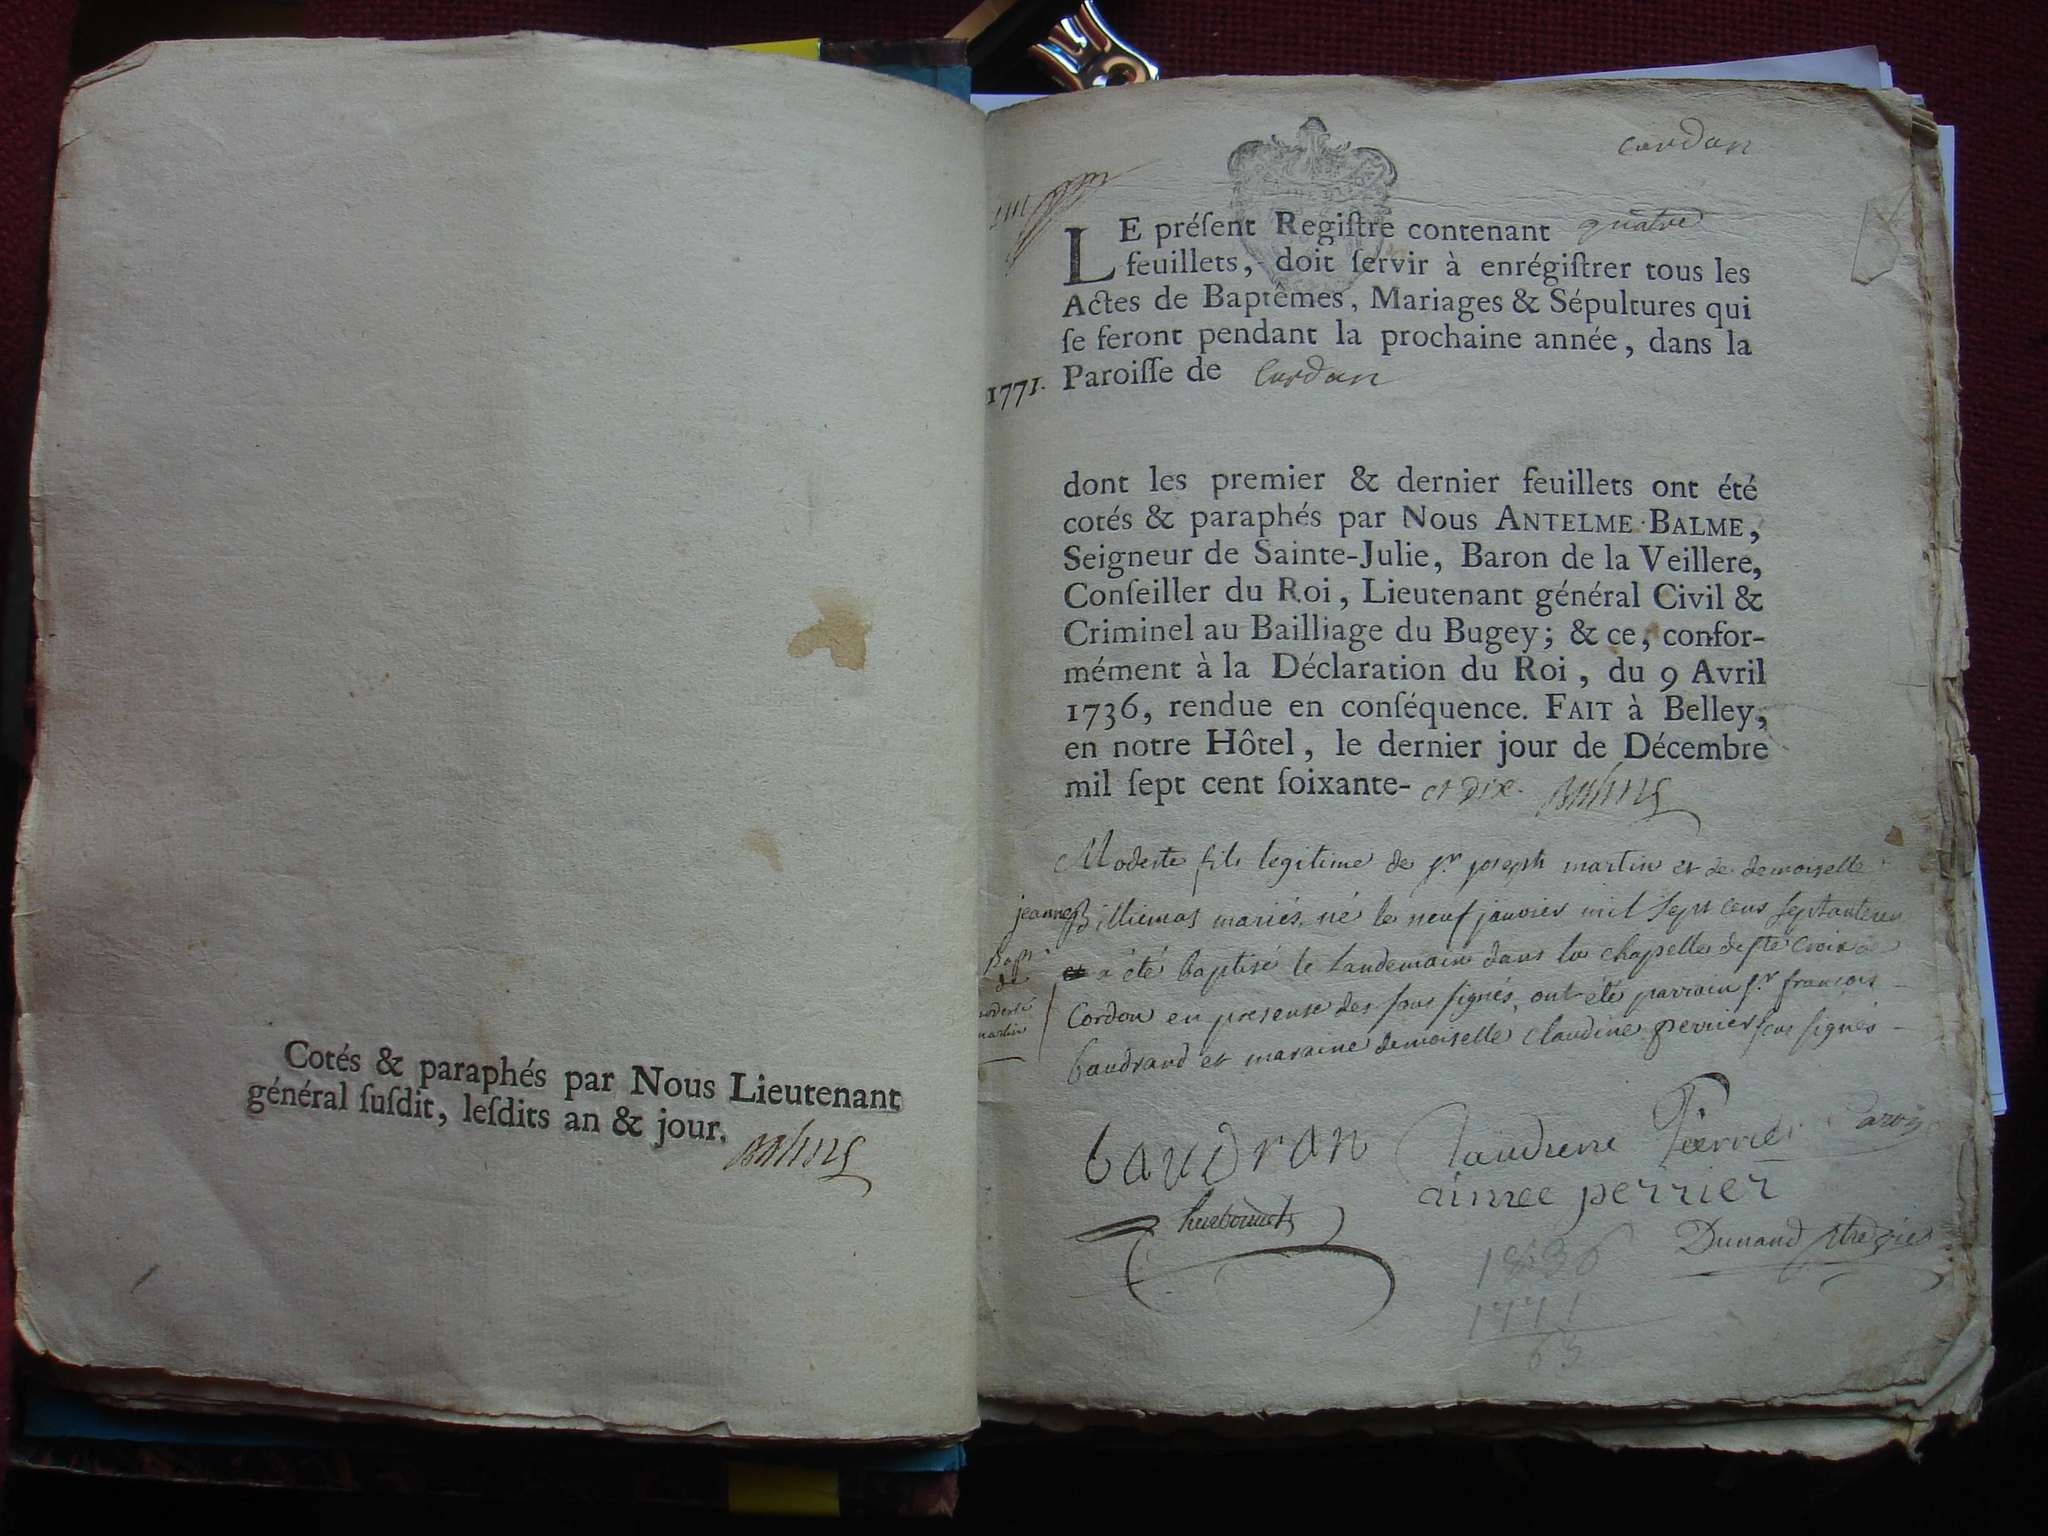 Cotés & paraphés par Nous Lieutenant
général ſuſdit, leſdits an & jour.
cordon
LE préſent Regiſtre contenant quatre
feuillets, doit ſervir à enrégiſtrer tous les
Actes de Baptêmes, Mariages & Sépultures qui
ſe feront pendant la prochaine année, dans la
1771. Paroiſſe de Cordon
dont les premier & dernier feuillets ont été
cotés & paraphés par Nous ANTELME BALME,
Seigneur de Sainte-Julie, Baron de la Veillere,
Conſeiller du Roi, Lieutenant général Civil &
Criminel au Bailliage du Bugey; & ce, confor-
mément à la Déclaration du Roi, du 9 Avril
1736, rendue en conſéquence. FAIT à Belley,
en notre Hôtel, le dernier jour de Décembre
mil ſept cent ſoixante- et dix.
Modeste fils legitime de sr joseph martin et de demoiselle
jeanne Billiemas mariés, né le neuf janvier mil sept cens septanteun
a été baptisé le landemain dans la chapelle de ste croix de
Cordon en presense des sous signés, ont été parrain sr françois
baudrand et maraine demoiselle claudine perrier sous signés
bapt
de
modeste
martin
baudran
Claudiene Perrier
aimee perrier
Dunand
1836
1771
63